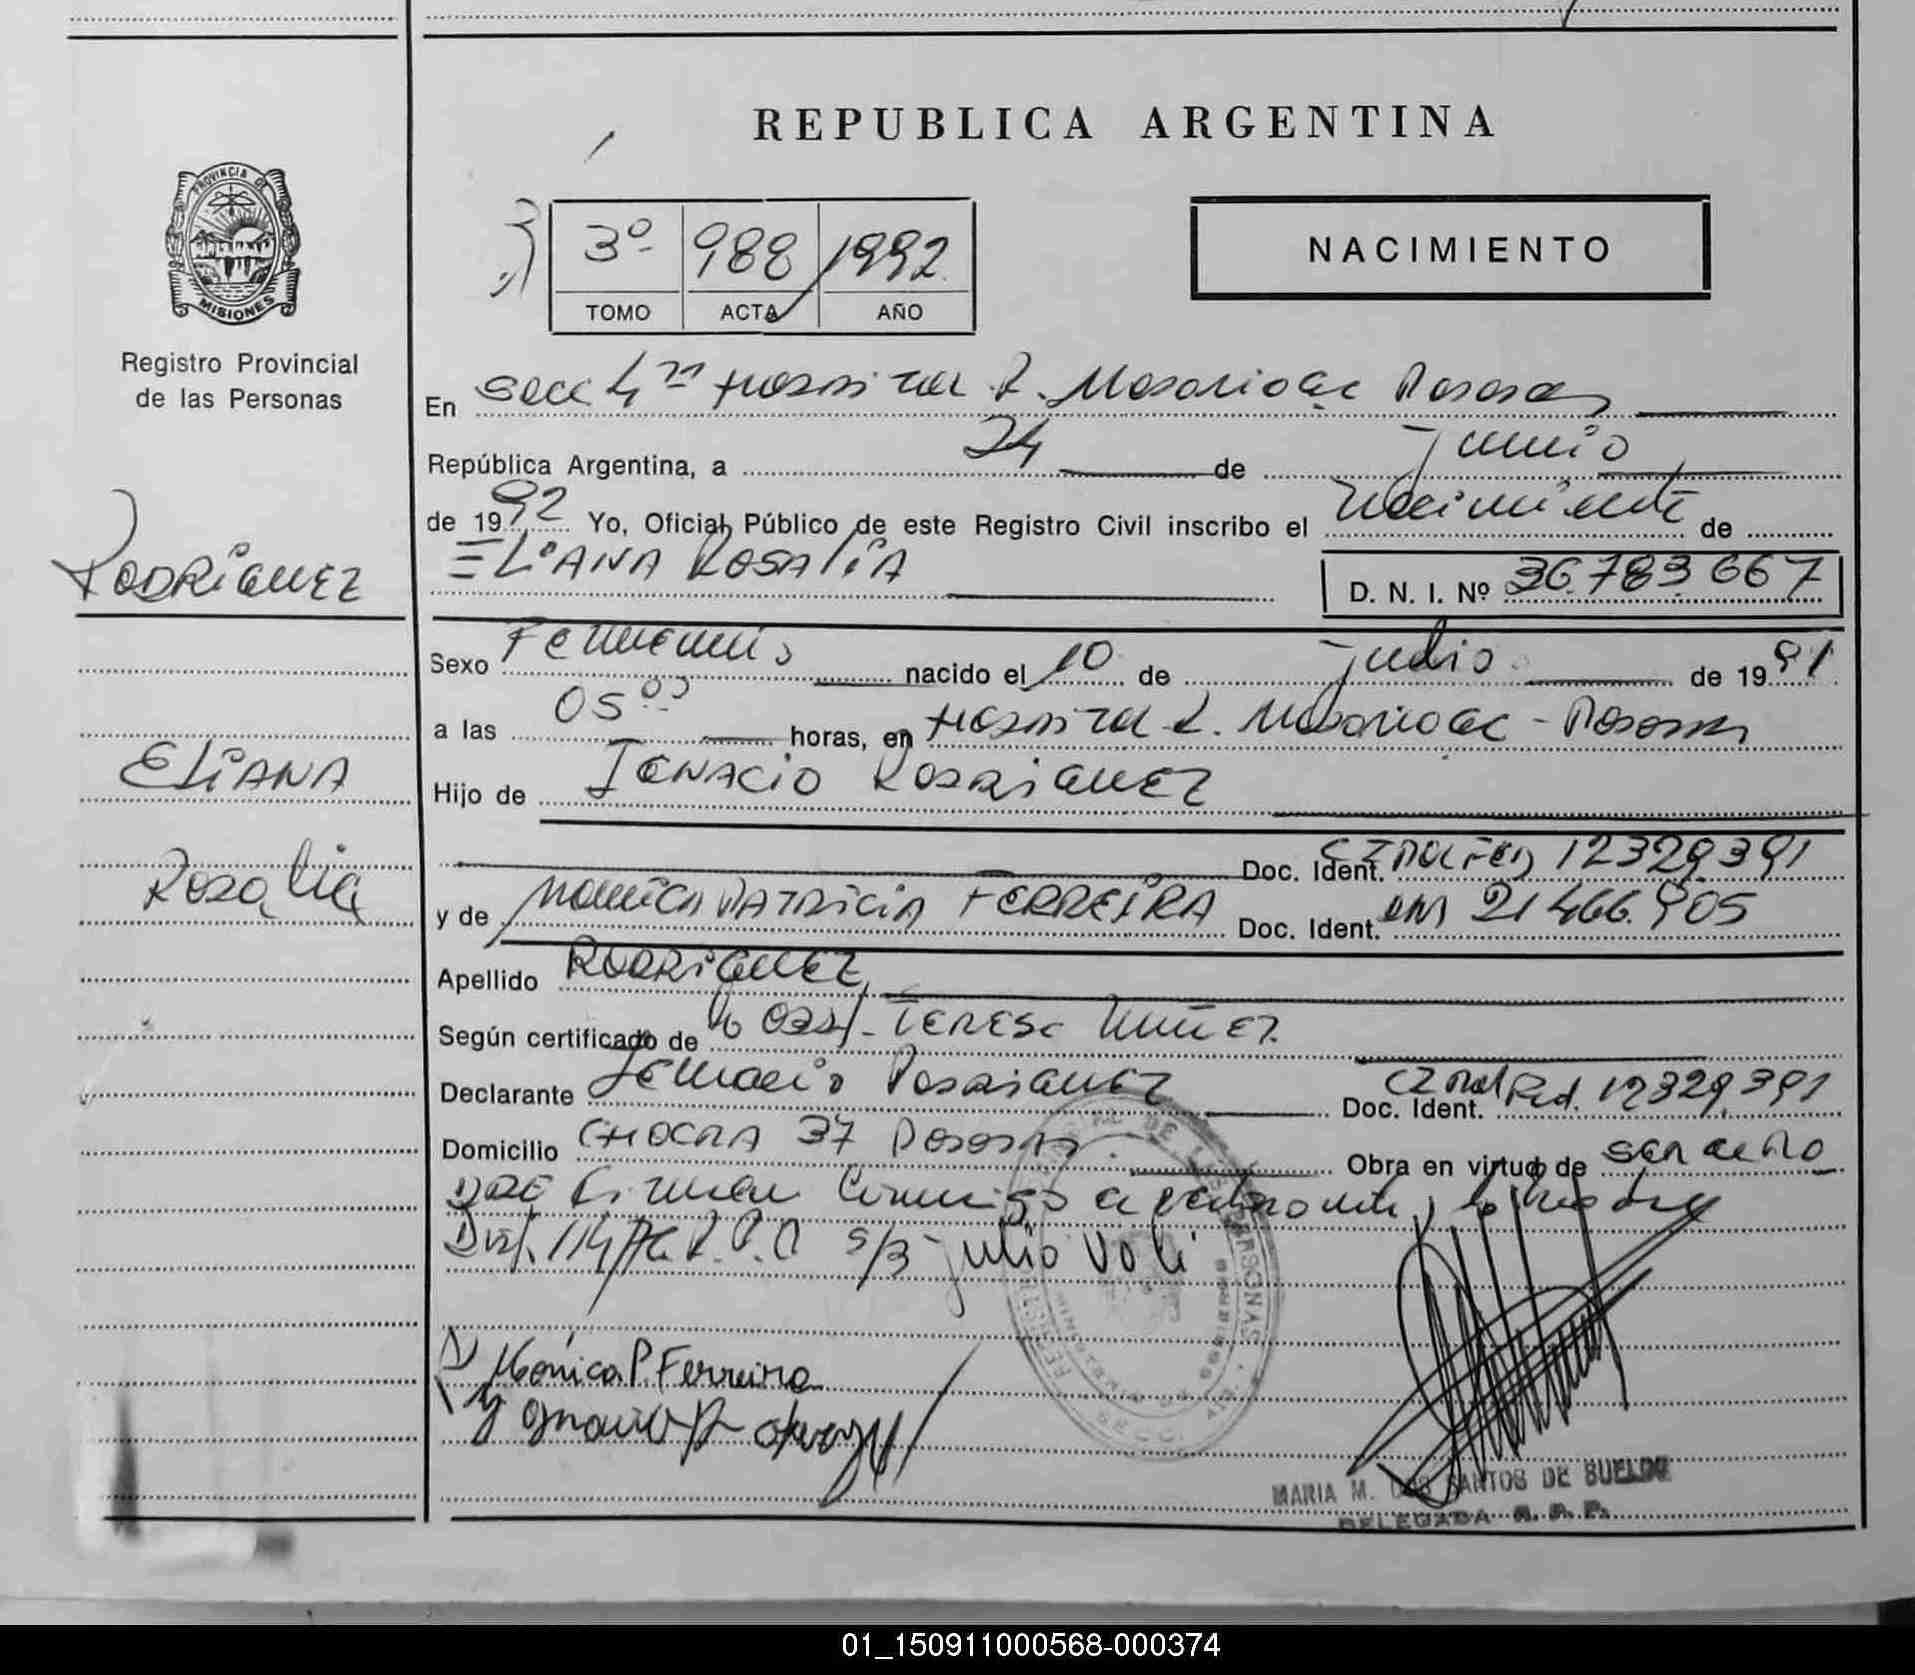 REPUBLICA ARGENTINA
PROVINCIA DE
MISIONES
Registro Provincial
de las Personas
3º 988 1992
TOMO ACTA AÑO
NACIMIENTO
En Secc 4ta Hospital R. Madariaga Posadas
República Argentina, a 24 de junio
de 1992 Yo, Oficial Público de este Registro Civil inscribo el nacimiento de
RODRIGUEZ
ELIANA ROSALIA D. N. I. Nº 36.783.667
Sexo Femenino nacido el 10 de julio de 1991
a las 05 00 horas, en Hospital R. Madariaga - Posadas
ELIANA
Hijo de IGNACIO RODRIGUEZ
Doc. Ident. 12329391
Rosalia
y de MONICA PATRICIA FERREIRA Doc. Ident. DNI 21466.905
Apellido RODRIGUEZ
Según certificado de Obst. TERESA NUÑEZ
Declarante Ignacio Rodriguez Doc. Ident. 12329391
Domicilio CHACRA 37 Posadas Obra en virtud de ser el padre
firman conmigo el declarante y la madre
S/B julio vale
Monica P. Ferreira
MARIA M. DOS SANTOS DE BUENO
DELEGADA R. P. P.
01_150911000568-000374